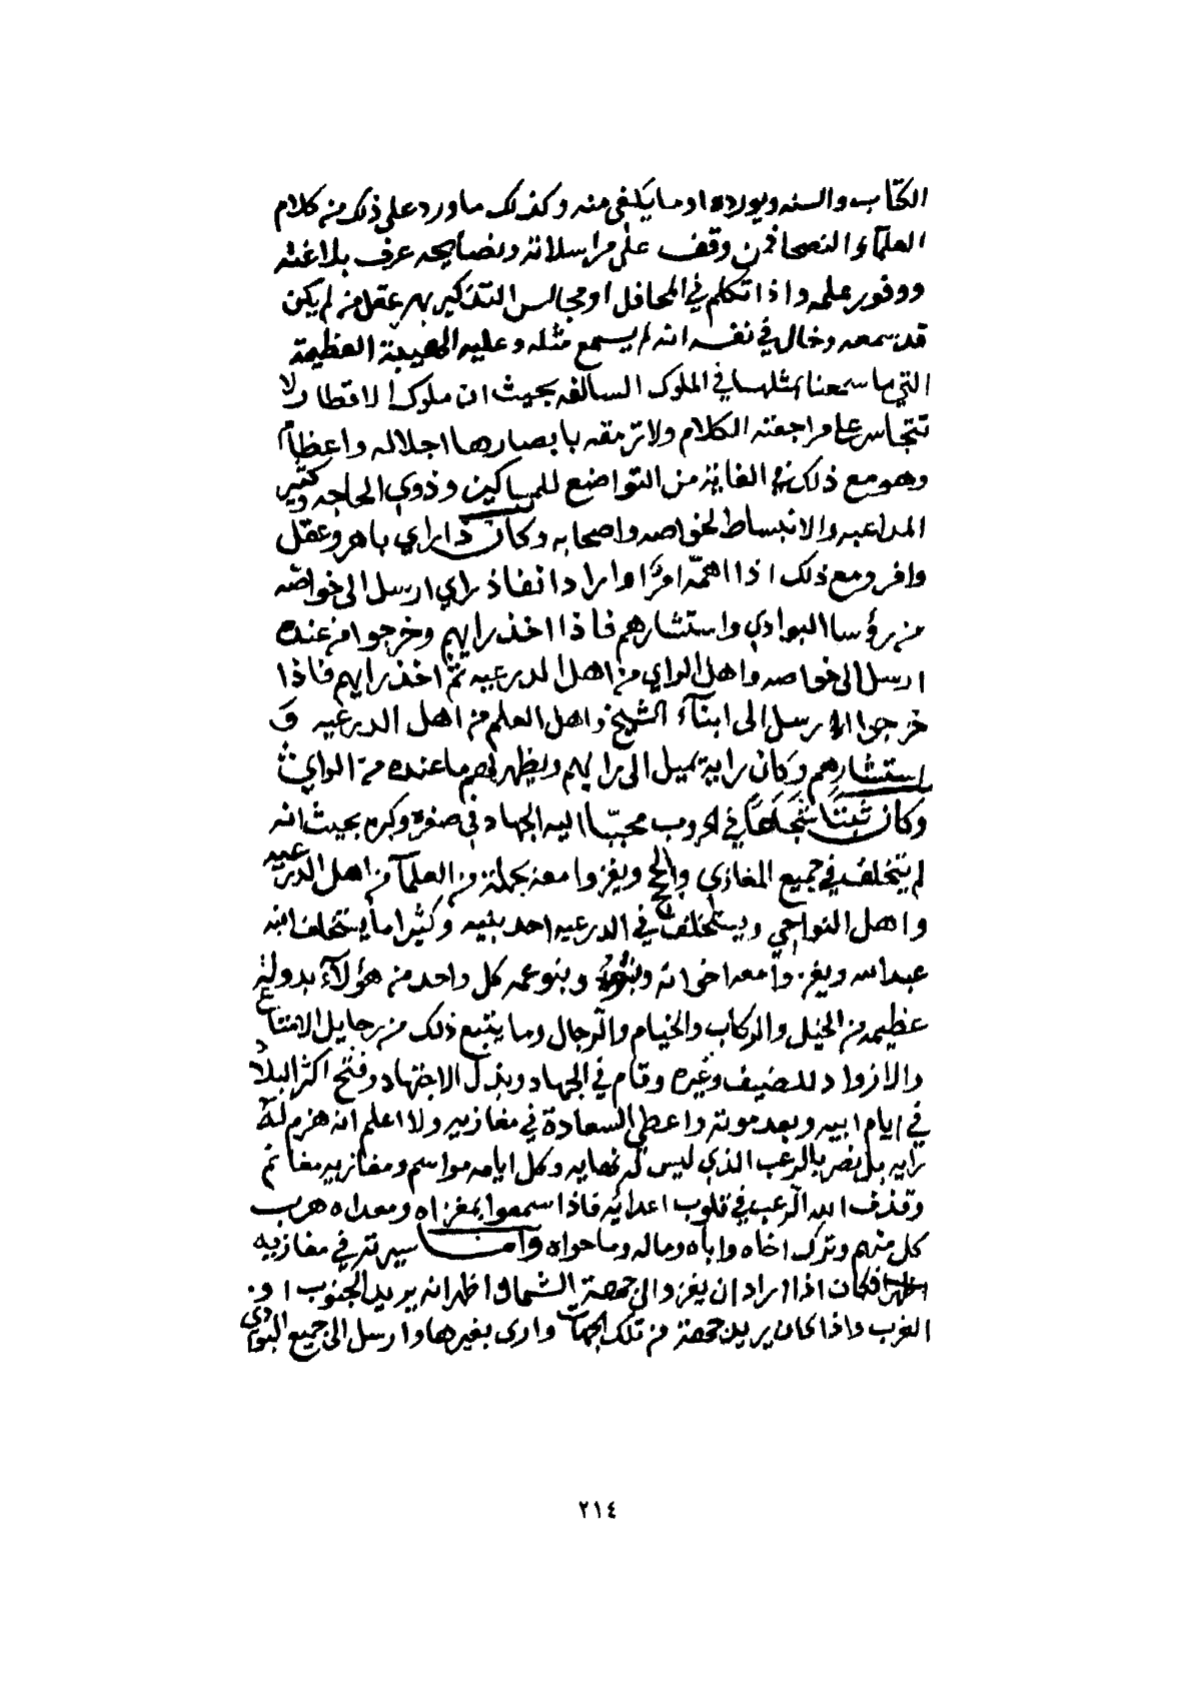 الكتاب والسنه ويورده او ما يكفي منه وكذلك ما ورد على ذلك من كلام
العلمآء والنصحا فمن وقف على مراسلاته ونصايحه عرف بلاغته
ووفور علمه واذا تكلم في المحافل او مجالس التذكير بهر عقل من لم يكن
قد سمعه وخال في نفسه انه لم يسمع مثله وعليه الهيبة العظيمة
التي ما سمعنا بمثلها في الملوك السالفه بحيث ان ملوك الاقطار لا
تتجاسر على مراجعته الكلام ولا ترمقه بابصارها اجلاله واعظاماً
وهو مع ذلك في الغاية من التواضع للمساكين وذوي الحاجه وكثير
المداعبه والانبساط لخواصه واصحابه وكان ذا راي باهر وعقل
وافر ومع ذلك اذا اهمّه امرًا وارادا انفاذ راي ارسل الى خواصّه
من رؤسا البوادي واستشارهم فاذا اخذ رايهم وخرجوا من عنده
ارسل الى خواصه واهل الراي من اهل الدرعيه ثم اخذ رايهم فاذا
خرجوا ارسل الى ابنآء الشيخ واهل العلم من اهل الدرعيه و
استشارهم وكان رايه يميل الى رايهم ويظهر لهم ما عنده من الراي
وكان ثبتًا شجاعاً في الحروب محببّا اليه الجهاد في صغره وكبره بحيث انه
لم يتخلف في جميع المغازي والحج ويغزوا معه بجملة من العلمآ من اهل الدرعيه
واهل النواحي ويستخلف في الدرعيه احد بنيه وكثيرا ما يستخلف ابنه
عبدالله ويغزوا معه اخوانه وبنوه وبنو عمه كل واحد من هؤلآء بدولة
عظيمه من الخيل والركاب والخيام والرجال وما يتبع ذلك من رحايل الامتاع
والازواد للضيف وغيره وقام في الجهاد وبذل الاجتهاد وفتح اكثر البلاد
في ايام ابيه وبعد موته واعطي السعادة في مغازيه ولا اعلم انه هزم له
رايه بل نصر بالرعب الذي ليس له نهايه وكل ايامه مواسم ومغازيه مغانم
وقذف الله الرعب في قلوب اعدائه فاذا سمعوا بمغزاه ومعداه هرب
كل منهم وترك اخاه واباه وماله وما حواه واما سيرته في مغازيه
فكان اذا اراد ان يغزوا الى جهة الشمال اظهر انه يريد الجنوب او
الغرب واذا كان يريد جهة من تلك الجهات وارى بغيرها وارسل الى جميع البوادي
٢١٤